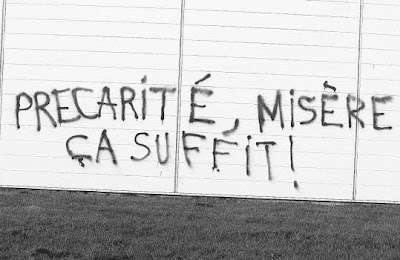 PRECARiTÉ, MiSÈRE
ÇA SUFFiT!